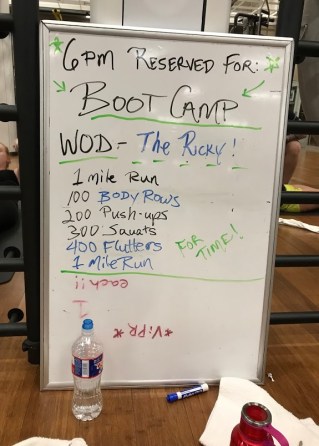 6PM RESERVED FOR:
BOOT CAMP
WOD - The Ricky!
1 mile Run
100 BODY ROWS
200 Push-ups
300 Squats
400 Flutters
1 Mile Run
FOR TIME!
each!!
1
*ViPR*